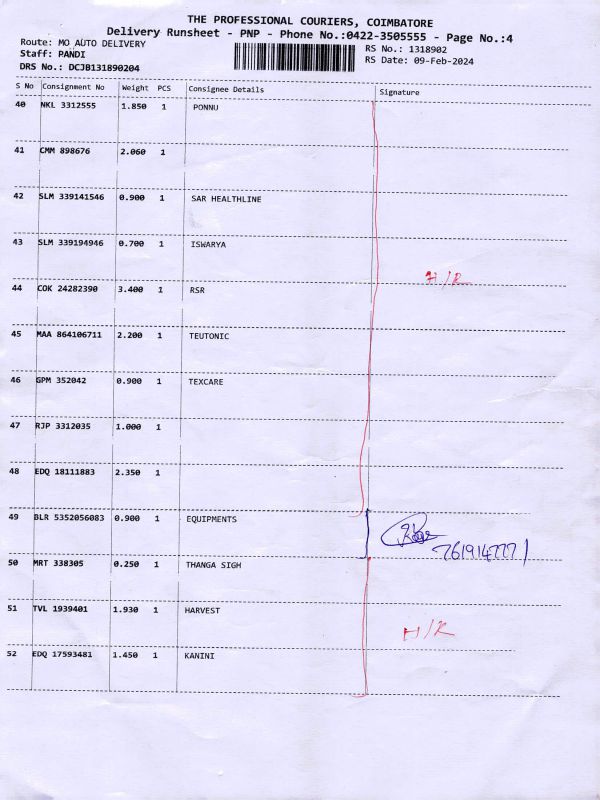 THE PROFESSIONAL COURIERS, COIMBATORE
Delivery Runsheet - PNP - Phone No.:0422-3505555 - Page No.:4
Route: MO AUTO DELIVERY
RS No.: 1318902
Staff: PANDI
RS Date: 09-Feb-2024
DRS No.: DCJB131890204
S No Consignment No Weight PCS Consignee Details Signature
40 NKL 3312555 1.850 1 PONNU
41 CMM 898676 2.060 1
42 SLM 339141546 0.900 1 SAR HEALTHLINE
43 SLM 339194946 0.700 1 ISWARYA
H/R
44 COK 24282390 3.400 1 RSR
45 MAA 864106711 2.200 1 TEUTONIC
46 GPM 352042 0.900 1 TEXCARE
47 RJP 3312035 1.000 1
48 EDQ 18111883 2.350 1
49 BLR 5352056083 0.900 1 EQUIPMENTS
50 MRT 338305 0.250 1 THANGA SIGH
51 TVL 1939401 1.930 1 HARVEST
H/R
52 EDQ 17593481 1.450 1 KANINI